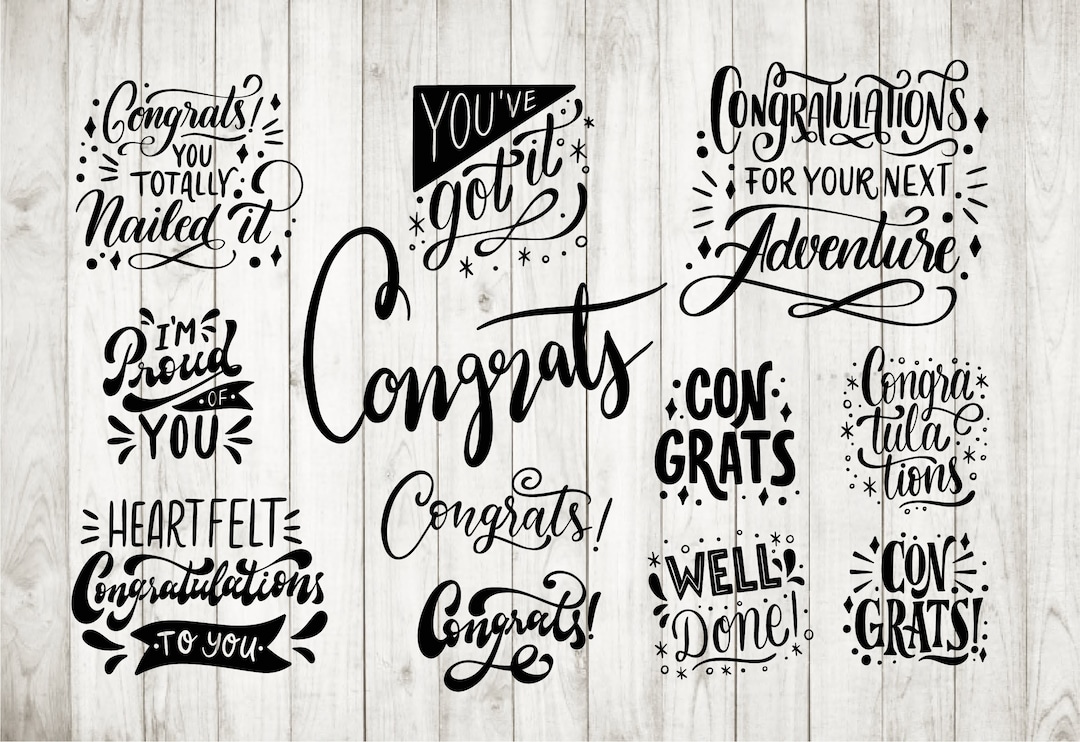 Congrats!
YOU
TOTALLY
Nailed it
YOU'VE
got it
CONGRATULATIONS
FOR YOUR NEXT
Adventure
Congrats
I'M
Proud
OF
YOU
CON
GRATS
Congra
tula
tions
HEARTFELT
Congratulations
TO YOU
Congrats!
Congrats!
WELL
DONE!
CON
GRATS!